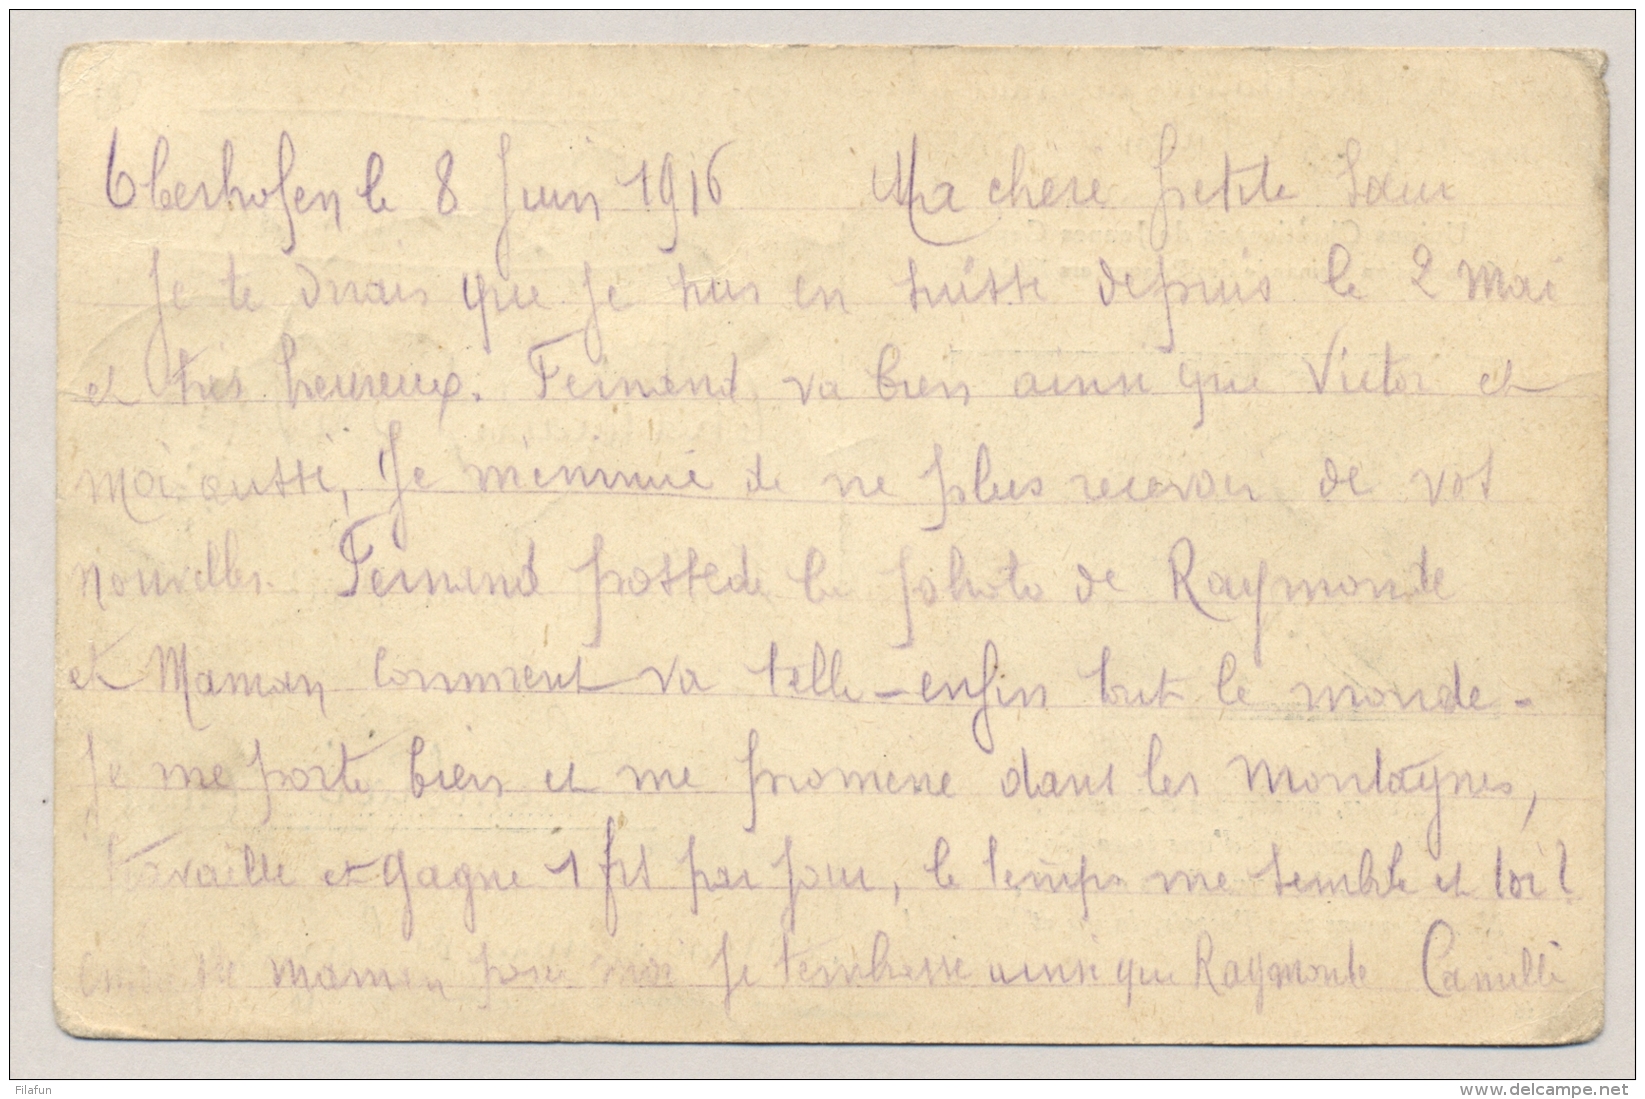 Oberhofen le 8 Juin 1916 Ma chere petite Sœur
Je te dirais que je suis en suisse depuis le 2 Mai
et tres heureux. Fernand va bien ainsi que Victor et
moi aussi, Je m'ennuie de ne plus recevoir de vos
nouvelles. Fernand possede la photo de Raymonde
et Maman comment va telle - enfin tout le monde -
Je me porte bien et me promene dans les Montagnes,
travaille et gagne 1 frs par jour, le temps me semble et toi?
maman pour moi Je t'embrasse ainsi que Raymonde Camille
Filafun
www.delcampe.net